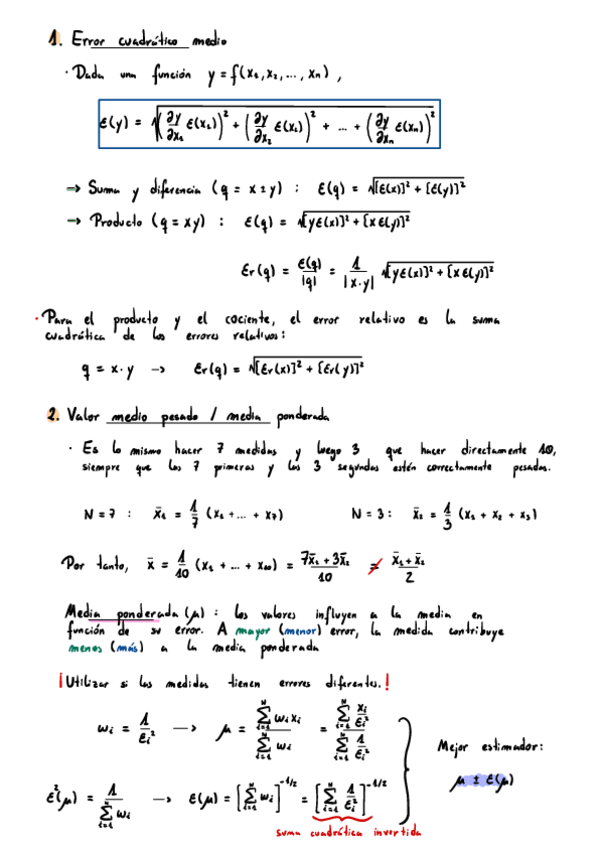 1. Error cuadrático medio
· Dada una función y = f(x₁, x₂, ..., xₙ),
ε(y) = √((∂y/∂x₁ ε(x₁))² + (∂y/∂x₂ ε(x₂))² + ... + (∂y/∂xₙ ε(xₙ))²)
→ Suma y diferencia (q = x ± y) : ε(q) = √([ε(x)]² + [ε(y)]²)
→ Producto (q = xy) : ε(q) = √([yε(x)]² + [xε(y)]²)
εr(q) = ε(q)/|q| = 1/|x·y| √([yε(x)]² + [xε(y)]²)
· Para el producto y el cociente, el error relativo es la suma
cuadrática de los errores relativos:
q = x·y → εr(q) = √([εr(x)]² + [εr(y)]²)
2. Valor medio pesado / media ponderada
· Es lo mismo hacer 7 medidas y luego 3 que hacer directamente 10,
siempre que las 7 primeras y las 3 segundas estén correctamente pesadas.
N = 7 : x̄₁ = 1/7 (x₁ + ... + x₇) N = 3 : x̄₂ = 1/3 (x₁ + x₂ + x₃)
Por tanto, x̄ = 1/10 (x₁ + ... + x₁₀) = (7x̄₁ + 3x̄₂)/10 ≠ (x̄₁ + x̄₂)/2
Media ponderada (μ) : los valores influyen a la media en
función de su error. A mayor (menor) error, la medida contribuye
menos (más) a la media ponderada
¡Utilizar si las medidas tienen errores diferentes.!
wᵢ = 1/εᵢ² → μ = Σᵢ₌₁ᴺ wᵢxᵢ / Σᵢ₌₁ᴺ wᵢ = Σᵢ₌₁ᴺ xᵢ/εᵢ² / Σᵢ₌₁ᴺ 1/εᵢ²
Mejor estimador:
μ ± ε(μ)
ε²(μ) = 1/Σᵢ₌₁ᴺ wᵢ → ε(μ) = [Σᵢ₌₁ᴺ wᵢ]^-1/2 = [Σᵢ₌₁ᴺ 1/εᵢ²]^-1/2
suma cuadrática invertida